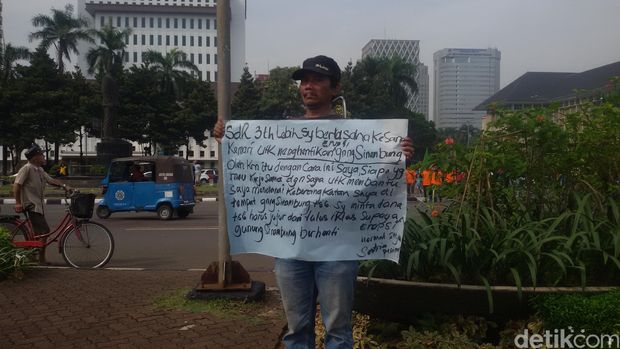 SdR 3th Lebih Sy berusaha kesana
kemari utk menghentikan erupsi gng Sinanbung
Oleh krn itu dengan cara ini saya siapa yg
mau kerja sama dgn saya utk membantu
saya mendanai keberangkatan saya di
tempat gng Sinanbung tsb. Sy minta dana
tsb harus jujur dan tulus iklas supaya
gunung Sinanbung berhenti Erupsi
normal
detikcom